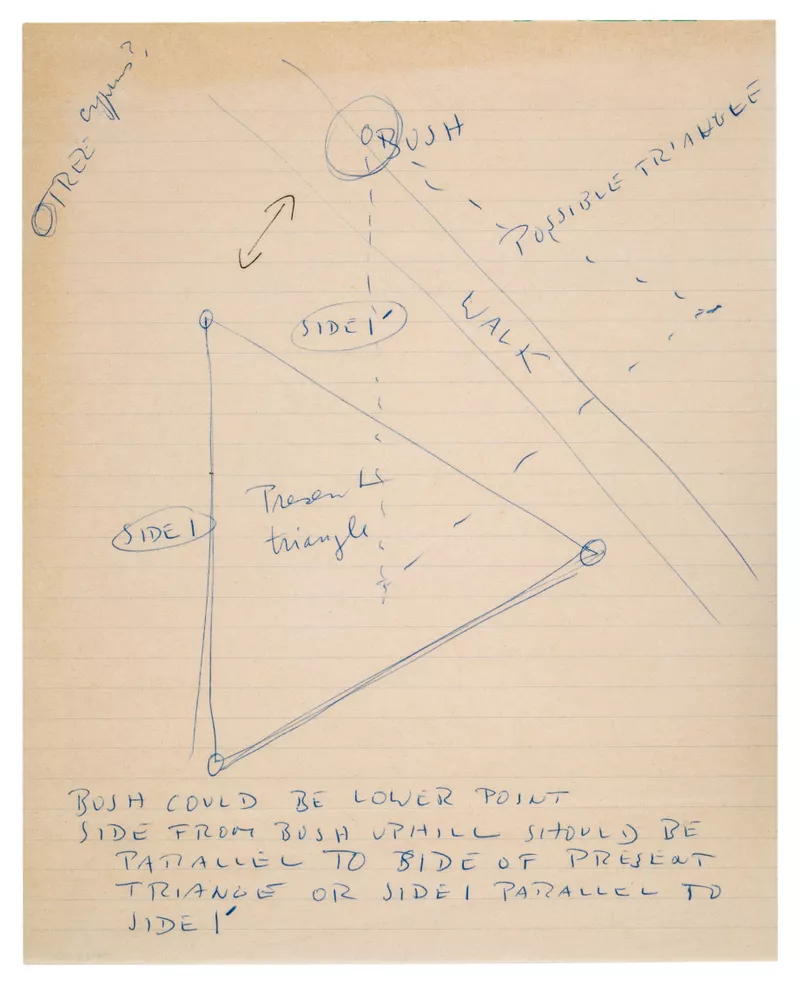 TREE
BUSH
POSSIBLE TRIANGLE
SIDE 1'
WALK
Present
triangle
SIDE 1
BUSH COULD BE LOWER POINT
SIDE FROM BUSH UPHILL SHOULD BE
PARALLEL TO SIDE OF PRESENT
TRIANGE OR SIDE 1 PARALLEL TO
SIDE 1'